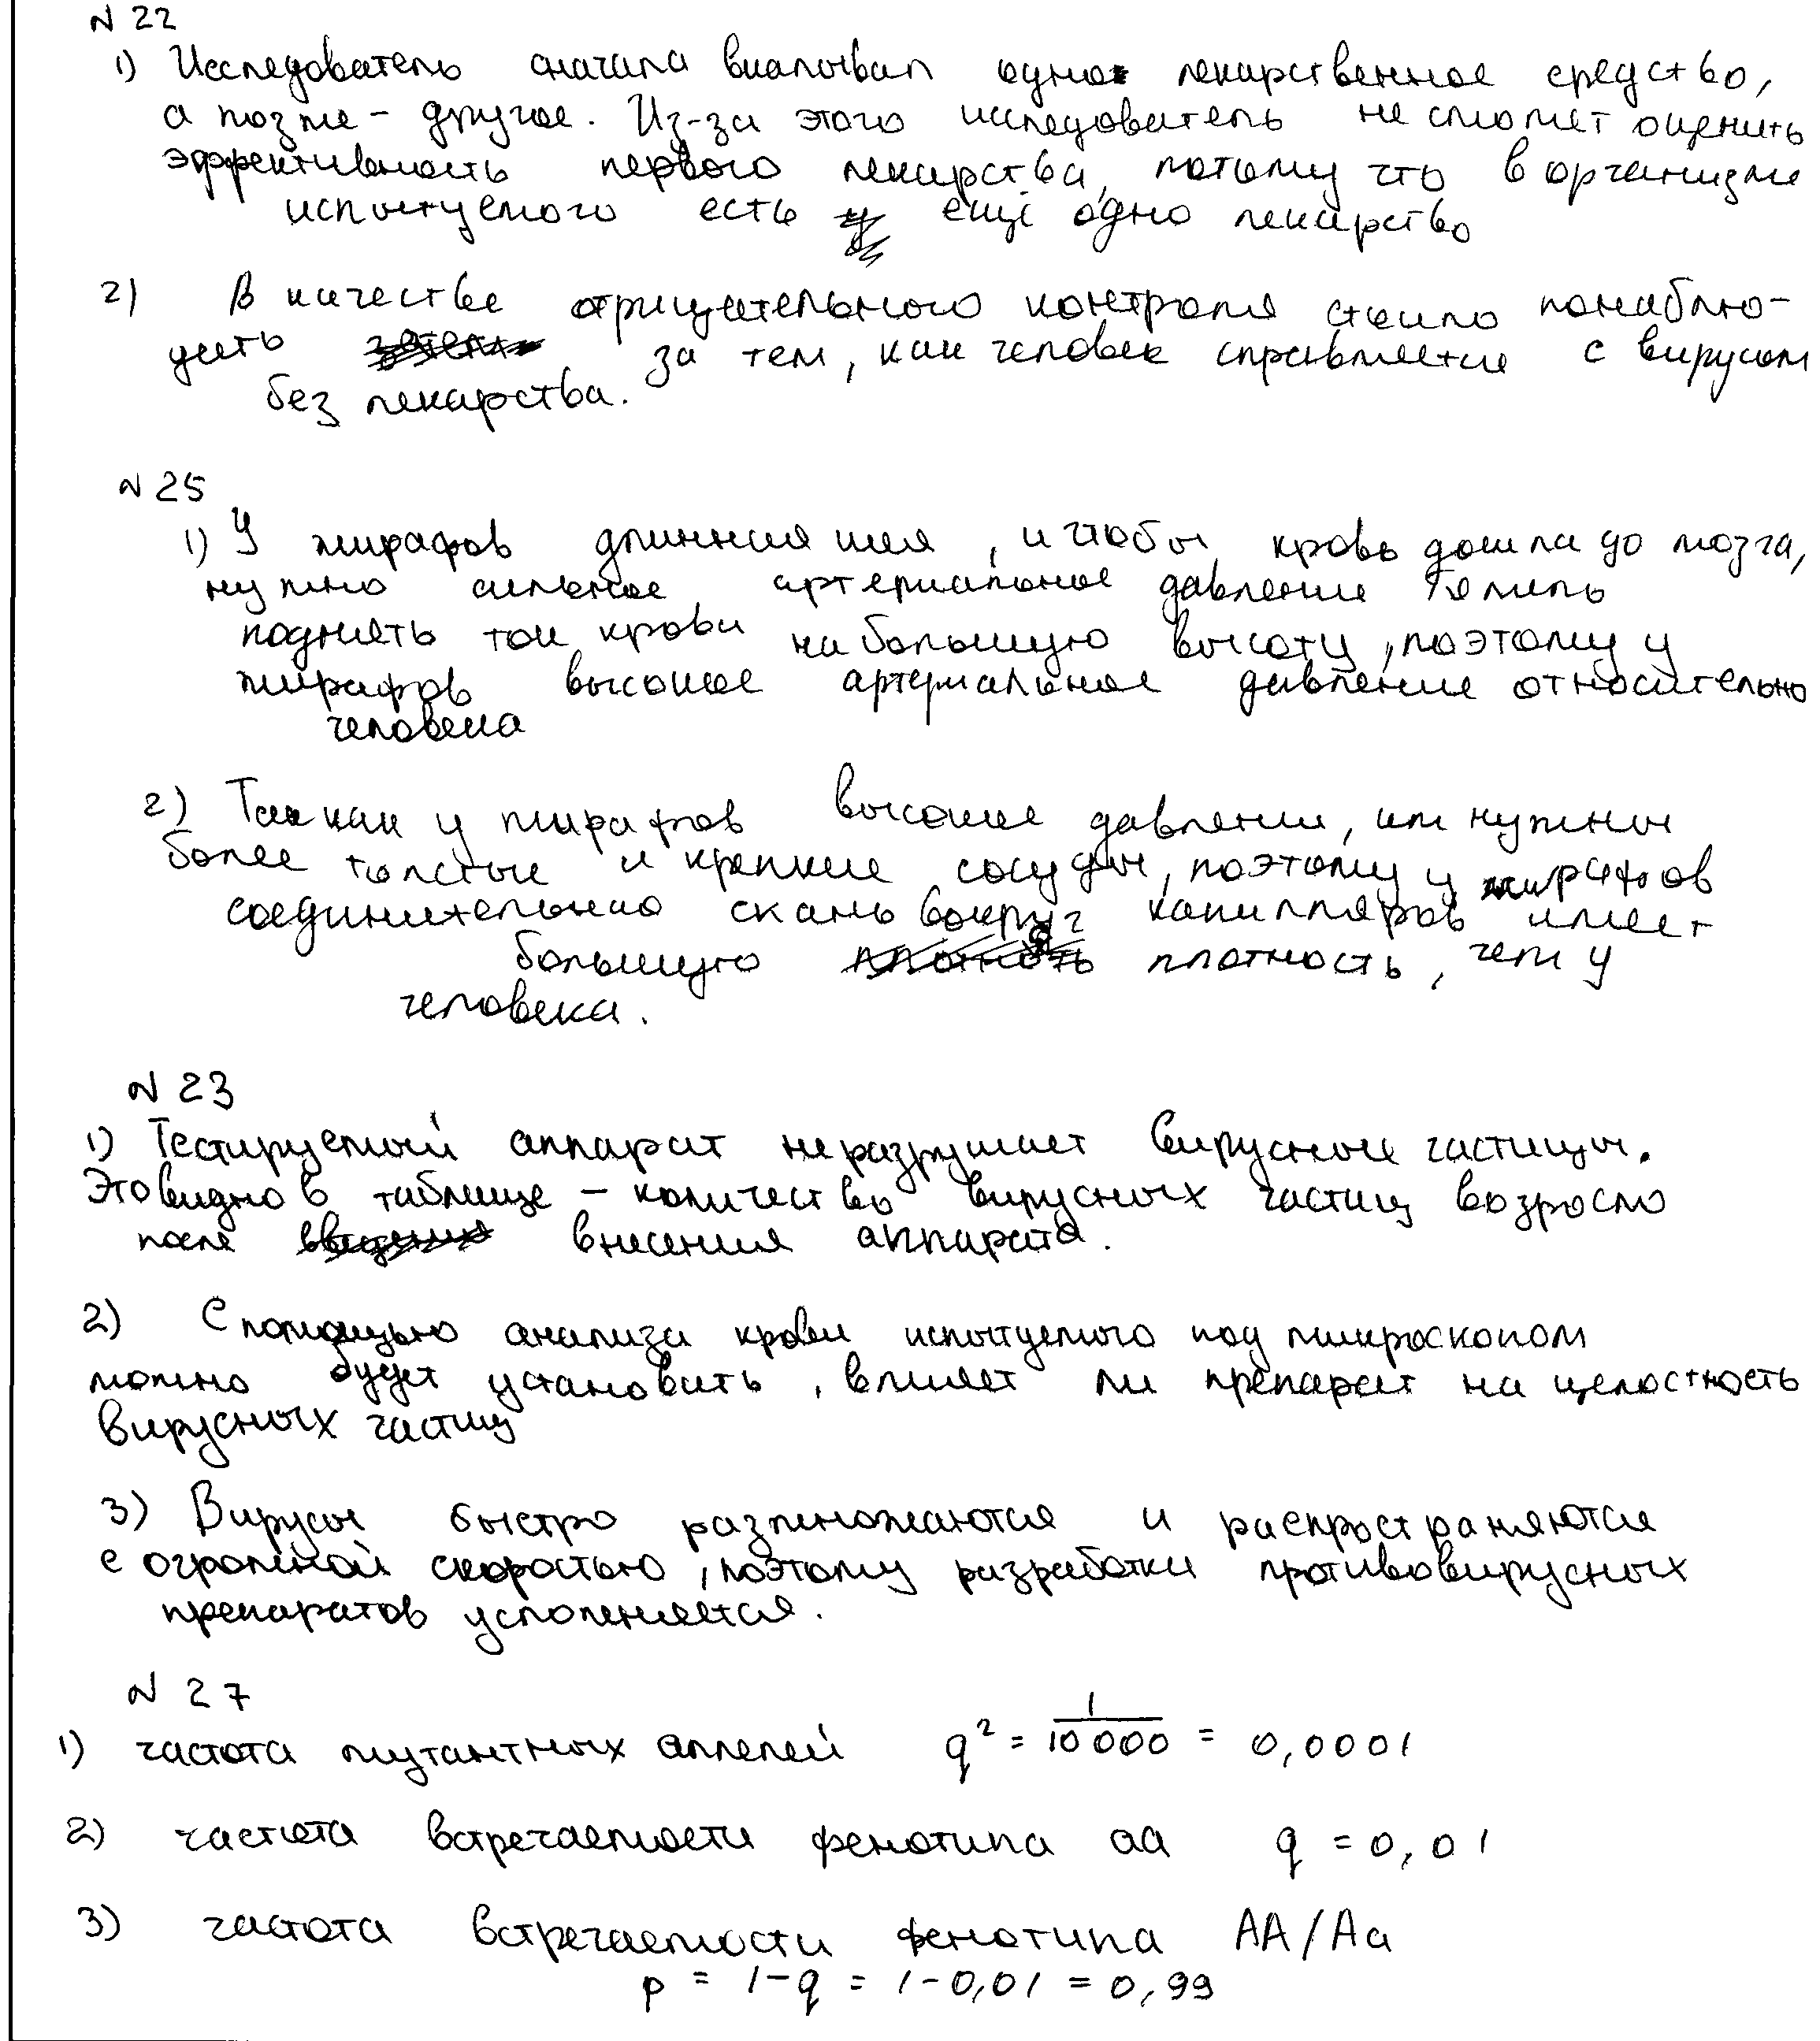 N 22
1) Исследователь сначала вкалывал одно лекарственное средство,
а позже - другое. Из-за этого исследователь не сможет оценить
эффективность первого лекарства, потому что в организме
испытуемого есть ещё одно лекарство
2) В качестве отрицательного контроля стоило понаблю-
дать за тем, как человек справляется с вирусом
без лекарства.
N 25
1) У жирафов длинная шея, и чтобы кровь дошла до мозга,
нужно сильное артериальное давление
поднять ток крови на большую высоту, поэтому у
жирафов высокое артериальное давление относительно
человека
2) Так как у жирафов высокое давлении, им нужны
более толстые и крепкие сосуды, поэтому у жирафов
соединительно скань вокруг капилляров имеет
большую плотность, чем у
человека.
N 23
1) Тестируемый аппарат не разрушает вирусные частицы.
Это видно в таблице - количество вирусных частиц возросло
после внесения аппарата.
2) С помощью анализа крови испытуемого под микроскопом
можно будет установить, влияет ли препарат на целостность
вирусных частиц
3) Вирусы быстро размножаются и распространяются
с огромной скоростью, поэтому разработки противовирусных
препаратов усложняется.
N 27
1) частота мутантных аллелей q² = 1/10000 = 0,0001
2) частота встречаемости фенотипа aa q = 0,01
3) частота встречаемости фенотипа AA/Aa
p = 1-q = 1-0,01 = 0,99